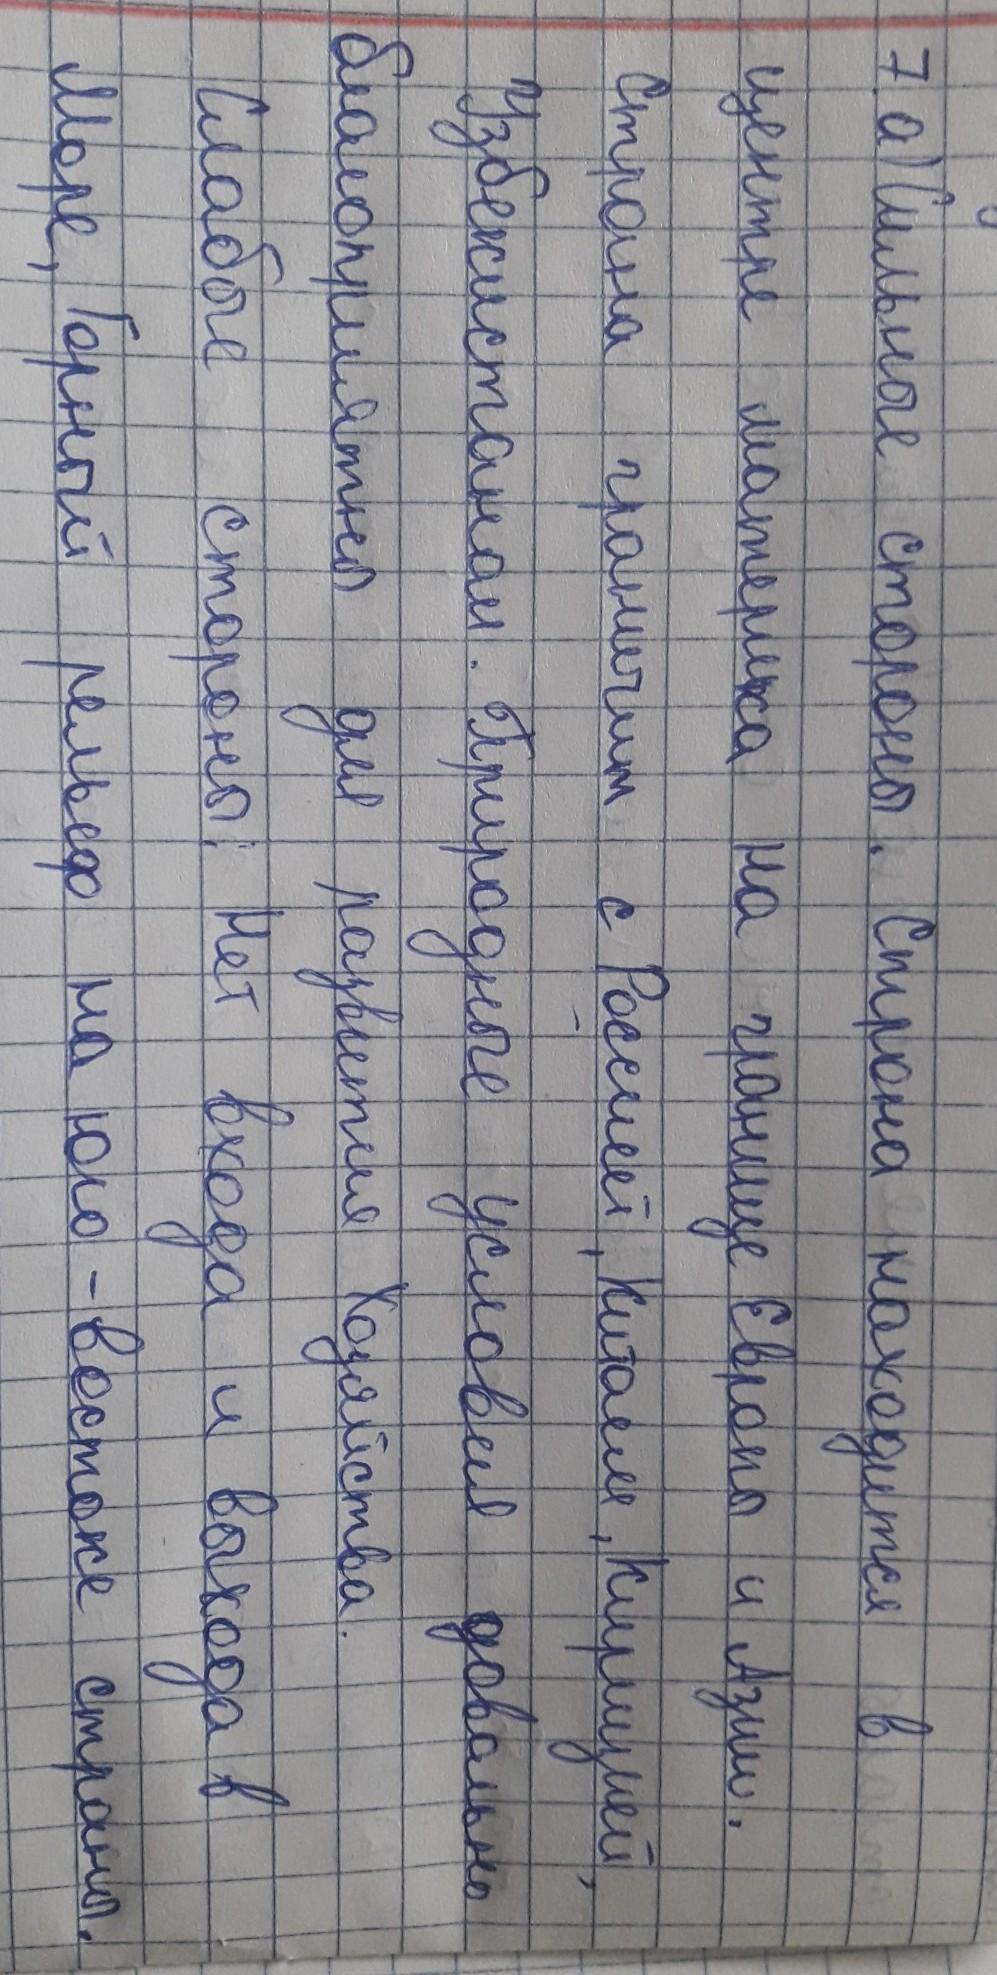 7. а) Сильные стороны. Строна находится в
центре материка на границе Европы и Азии.
Строна граничит с Россией, Китаем, Киргизией,
Узбекистаном. Природные условия довально
благоприятны для развития Хозяйства.
Слабые стороны: Нет входа и выхода в
Море, Горный рельеф на юго-востоке страны.